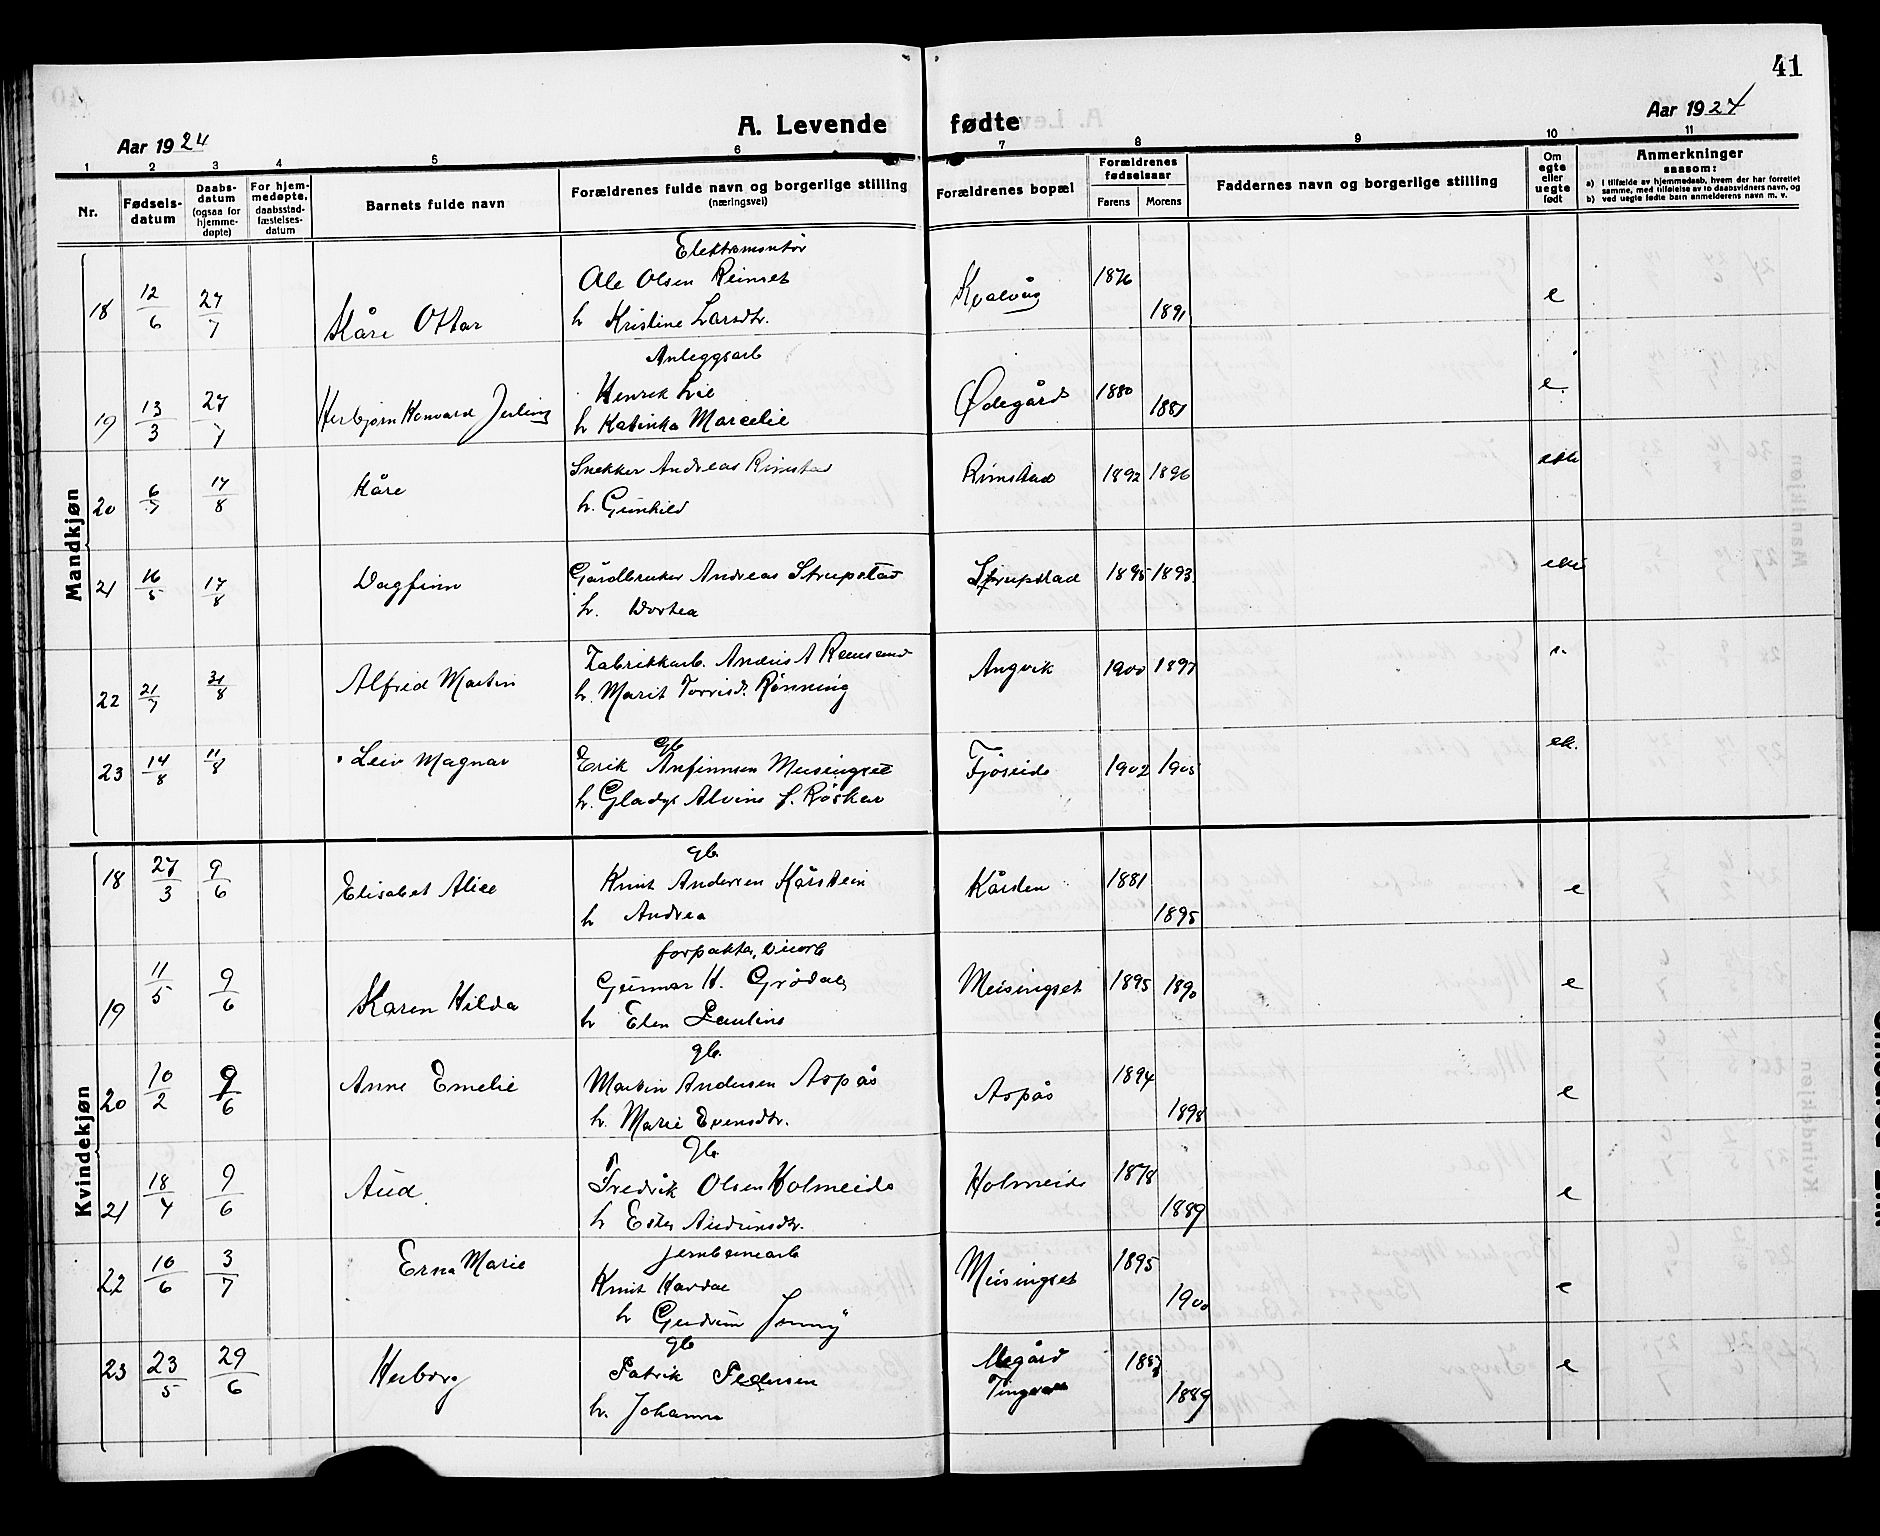 41
Aar 1924
A. Levende fødte
Aar 1924
1 2 3 4 5 6 7 8 9 10 11
Nr.
Fødsels-datum
Daabs-datum (ogsaa for hjemme-døpte)
For hjem-medøpte, daabsstad-fæstelses-datum
Barnets fulde navn
Forældrenes fulde navn og borgerlige stilling (næringsvei)
Forældrenes bopæl
Forældrenes fødselsaar
Farens Morens
Faddernes navn og borgerlige stilling
Om egte eller uegte født
Anmerkninger saasom:
a) I tilfælde av hjemmedaab, hvem der har forrettet samme, med tilføielse av to daabsvidners navn, og
b) ved uegte fødte barn anmelderens navn m. v.
Mandkjøn
Elektromontør
18 12/6 27/7 Kåre Ottar Ole Olsen Reinset Kvalvåg 1876 e
h Kristine Larsdtr. 1891
Anleggsarb
19 13/3 27/7 Herbjørn Henrik Lie Ødegård 1880 e
h Katinka Marcelie 1881
20 6/7 17/8 Kåre Snekker Andreas Rimstad Rimstad 1892 1896
h. Gunhild
21 16/5 17/8 Dagfinn Gårdbruker Andreas Strupstad Strupstad 1895 1893
h. Dortea
22 21/7 31/8 Alfred Martin Fabrikkarb. Anders A Angvik 1900 1897
h. Marit Torrisd. Rønning
gb
23 14/8 11/8 Leiv Magnar Erik Anfinnsen Meisingset Fjøseide 1902 1905
h. Gladys Alvine f. Røskar
Kvindekjøn
gb.
18 27/3 9/6 Elisabet Alice Knut Andersen Hårstein Kården 1881 e
h Andrea 1895
forpakter,
19 11/5 9/6 Karen Hilda Gunnar H. Grødal Meisingset 1895 1890 e
h Elen Pauline
gb.
20 10/2 9/6 Anne Emelie Martin Andersen Aspås Aspås 1894 e
h. Marie Evensdtr. 1898
gb.
21 18/4 9/6 Aud Fredrik Olsen Holmeide Holmeide 1878 e
h Ester 1889
jernbanearb
22 10/6 3/7 Erna Marie Knut Meisingset 1895 e
h Gudrun Jenny 1900
gb
23 23/5 29/6 Herborg Patrik Pedersen Megård e
h. Johanna Tingvoll 1889